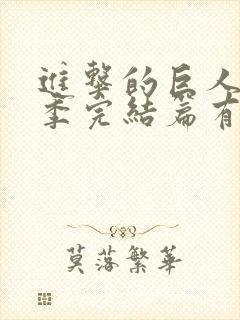 進擊的巨人
季完結篇有
莫落繁華